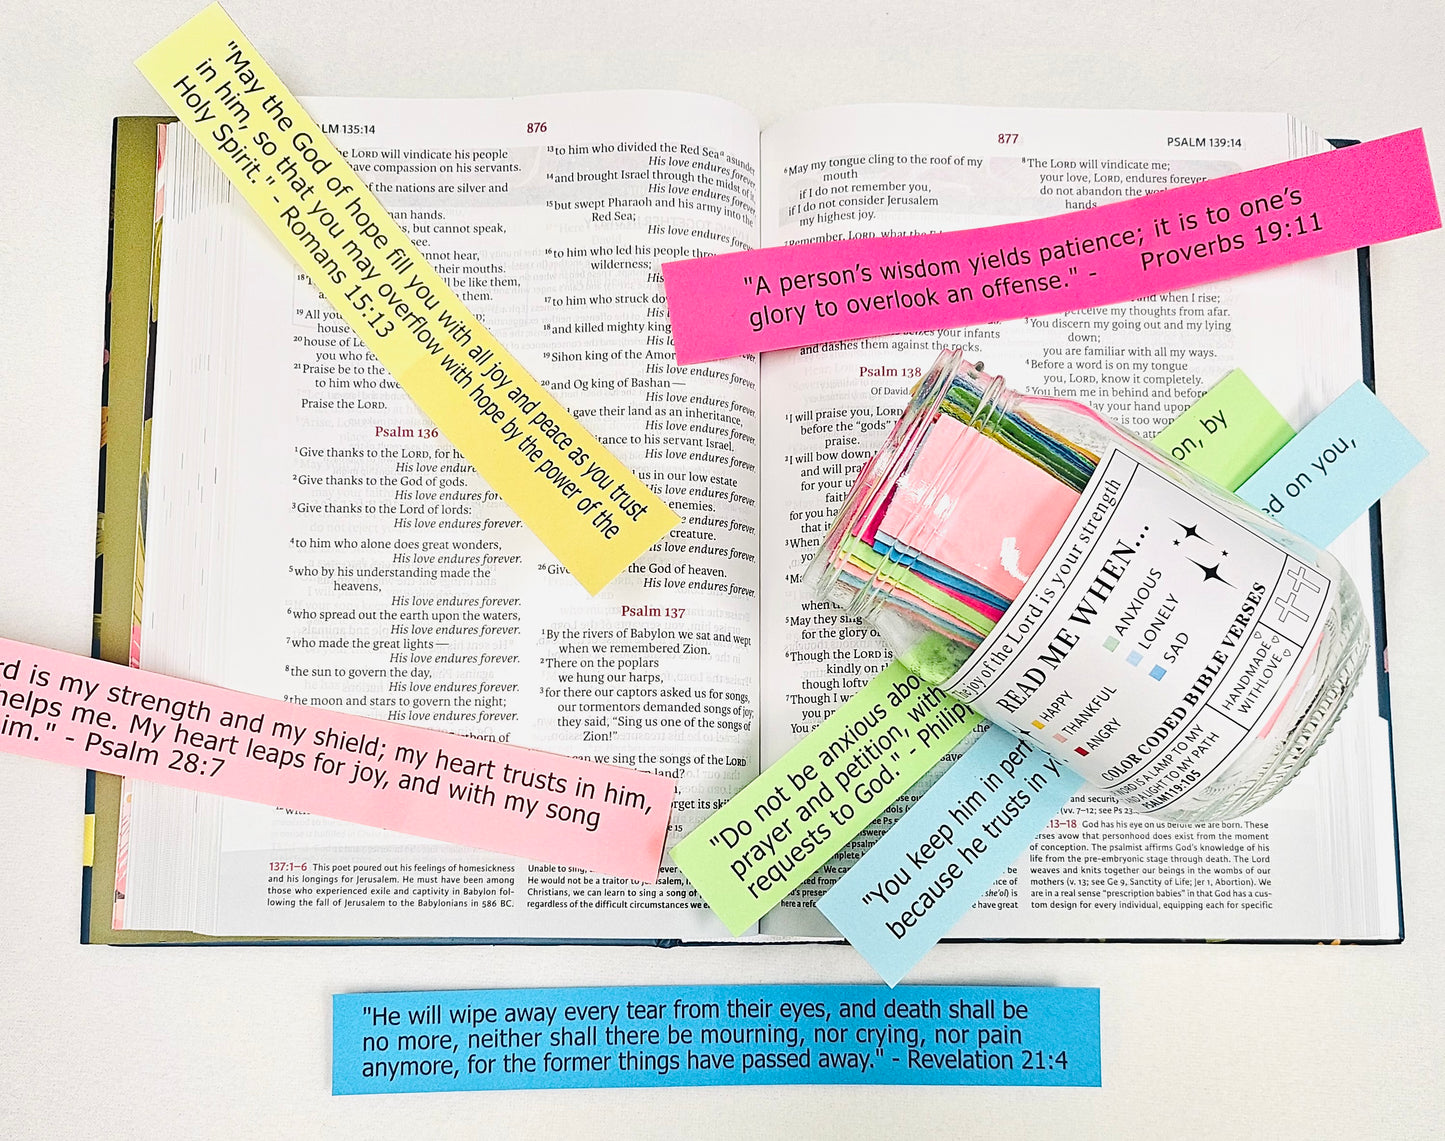 "May the God of hope fill you with all joy and peace as you trust
in him, so that you may overflow with hope by the power of the
Holy Spirit." - Romans 15:13
"A person's wisdom yields patience; it is to one's
glory to overlook an offense." - Proverbs 19:11
rd is my strength and my shield; my heart trusts in him,
helps me. My heart leaps for joy, and with my song
im." - Psalm 28:7
"Do not be anxious abo
prayer and petition, with
requests to God." - Philipp
on, by
"You keep him in perf
because he trusts in y
ed on you,
"He will wipe away every tear from their eyes, and death shall be
no more, neither shall there be mourning, nor crying, nor pain
anymore, for the former things have passed away." - Revelation 21:4
The joy of the Lord is your strength
READ ME WHEN...
ANXIOUS
LONELY
SAD
HAPPY
THANKFUL
ANGRY
COLOR CODED BIBLE VERSES
WORD IS A LAMP TO MY
AND A LIGHT TO MY PATH
PSALM 119:105
HANDMADE
WITH LOVE
ALM 135:14
876
he LORD will vindicate his people
have compassion on his servants.
of the nations are silver and
man hands.
, but cannot speak,
see.
nnot hear,
their mouths.
ll be like them,
them.
19 All you
house
20 house of Le
you who fe
21 Praise be to the
to him who dwe
Praise the LORD.
Psalm 136
1 Give thanks to the LORD, for he
His love endures
2 Give thanks to the God of gods.
His love endures for
3 Give thanks to the Lord of lords:
His love endures forever.
4 to him who alone does great wonders,
His love endures forever.
5 who by his understanding made the
heavens,
His love endures forever.
6 who spread out the earth upon the waters,
His love endures forever.
7 who made the great lights —
His love endures forever.
8 the sun to govern the day,
His love endures forever.
9 the moon and stars to govern the night;
His love endures forever.
born of
13 to him who divided the Red Sea a asunder
His love endures forever.
14 and brought Israel through the midst of it,
His love endures forever.
15 but swept Pharaoh and his army into the
Red Sea;
His love endures forever.
16 to him who led his people thro
wilderness;
His
17 to him who struck do
His l
18 and killed mighty king
His
19 Sihon king of the Amor
His love endures forever.
20 and Og king of Bashan —
His love endures forever.
gave their land as an inheritance,
His love endures forever.
itance to his servant Israel.
His love endures forever.
us in our low estate
love endures forever.
enemies.
endures forever.
creature.
endures forever.
26 Give the God of heaven.
His love endures forever.
Psalm 137
1 By the rivers of Babylon we sat and wept
when we remembered Zion.
2 There on the poplars
we hung our harps,
3 for there our captors asked us for songs,
our tormentors demanded songs of joy;
they said, "Sing us one of the songs of
Zion!"
can we sing the songs of the LORD
land?
rget its skil
137:1–6 This poet pourred out his feelings of homesickness
and his longings for Jerusalem. He must have been among
those who experienced exile and captivity in Babylon fol-
lowing the fall of Jerusalem to the Babylonians in 586 BC.
Unable to sing,
He would not be a traitor to Jerusalem,
Christians, we can learn to sing a song of
regardless of the difficult circumstances we
877
PSALM 139:14
6 May my tongue cling to the roof of my
mouth
if I do not remember you,
if I do not consider Jerusalem
my highest joy.
7 Remember, LORD, what the
seizes your infants
and dashes them against the rocks.
Psalm 138
Of David.
1 I will praise you, LORD
before the "gods"
praise.
2 I will bow down
and will pra
for your u
faith
for you ha
that it
3 When
you
4 Ma
when
5 May they sing
for the glory of
6 Though the LORD is
kindly on
though loft
7 Though I w
you pr
You s
8 The LORD will vindicate me;
your love, LORD, endures forever
do not abandon the wor
hands.
and when I rise;
perceive my thoughts from afar.
3 You discern my going out and my lying
down;
you are familiar with all my ways.
4 Before a word is on my tongue
you, LORD, know it completely.
5 You hem me in behind and before
lay your hand upon
is too won
and security
(vv. 7–12; see Ps 23
.13–18 God has his eye on us before we are born. These
erses avow that personhood does exist from the moment
of conception. The psalmist affirms God's knowledge of his
life from the pre-embryonic stage through death. The Lord
weaves and knits together our beings in the wombs of our
mothers (v. 13; see Ge 9, Sanctity of Life; Jer 1, Abortion). We
are in a real sense "prescription babies" in that God has a cus-
tom design for every individual, equipping each for specific